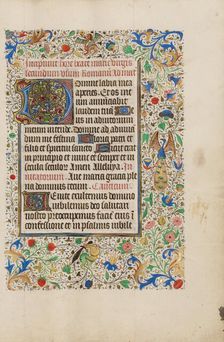 Incipiunt hore beate marie virgis
secundum usum Romanum Ad mat
Domine labia mea
aperies. Et os meu
annunciabit
laudem tuam
Deus in adiutori
meum intende. Domine ad adiuva
dum me festina. Gloria patri et
filio et spiritui sancto. Sicut erat
in principio et nunc et semper et in
secula seculor Amen Alleluya. In
vitatorium. Ave maria gracia ple
na dominus tecum.
Venite exultemus domino
iubilemus deo salutari
nostro preoccupemus faciem eius i
confessione et in psalmis iubile